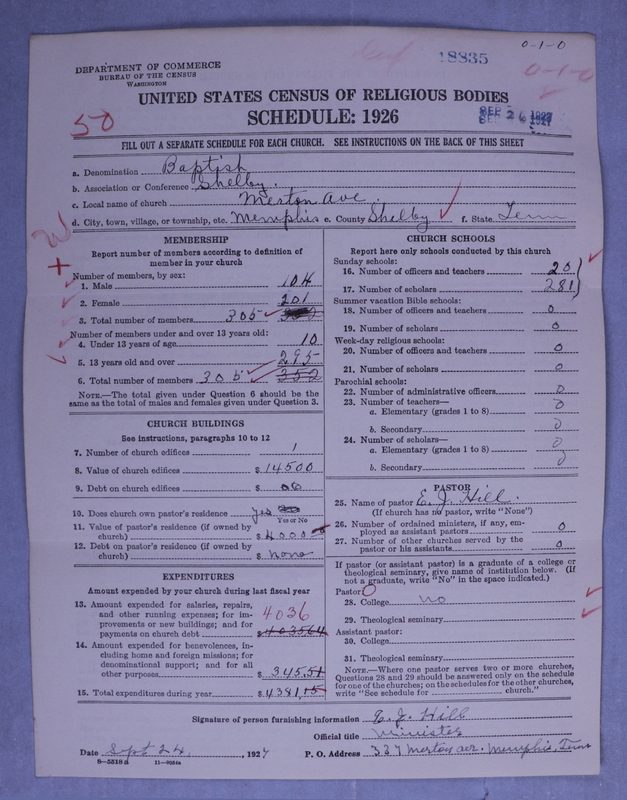 18835
0-1-0
0-1-0
DEPARTMENT OF COMMERCE
BUREAU OF THE CENSUS
WASHINGTON
UNITED STATES CENSUS OF RELIGIOUS BODIES
SCHEDULE: 1926
SEP 26 1927
50
FILL OUT A SEPARATE SCHEDULE FOR EACH CHURCH. SEE INSTRUCTIONS ON THE BACK OF THIS SHEET
a. Denomination Baptist
b. Association or Conference Shelby.
c. Local name of church Merton Ave.
d. City, town, village, or township, etc. Memphis e. County Shelby f. State Tenn
MEMBERSHIP
Report number of members according to definition of
member in your church
Number of members, by sex:
1. Male 104
2. Female 201
3. Total number of members 305
Number of members under and over 13 years old:
4. Under 13 years of age 10
5. 13 years old and over 295
6. Total number of members 305 352
NOTE.—The total given under Question 6 should be the
same as the total of males and females given under Question 3.
CHURCH BUILDINGS
See instructions, paragraphs 10 to 12
7. Number of church edifices 1
8. Value of church edifices $14500
9. Debt on church edifices $ 00
10. Does church own pastor's residence? yes
Yes or No
11. Value of pastor's residence (if owned by
church) $4000
12. Debt on pastor's residence (if owned by
church) $ none
EXPENDITURES
Amount expended by your church during last fiscal year
13. Amount expended for salaries, repairs,
and other running expenses; for im-
provements or new buildings; and for
payments on church debt 4036 $4035.64
14. Amount expended for benevolences, in-
cluding home and foreign missions; for
denominational support; and for all
other purposes $345.51
15. Total expenditures during year $4381.15
CHURCH SCHOOLS
Report here only schools conducted by this church
Sunday schools:
16. Number of officers and teachers 20
17. Number of scholars 281
Summer vacation Bible schools:
18. Number of officers and teachers 0
19. Number of scholars 0
Week-day religious schools:
20. Number of officers and teachers 0
21. Number of scholars 0
Parochial schools:
22. Number of administrative officers 0
23. Number of teachers—
a. Elementary (grades 1 to 8) 0
b. Secondary 0
24. Number of scholars—
a. Elementary (grades 1 to 8) 0
b. Secondary 0
PASTOR
25. Name of pastor E. J. Hill.
(If church has no pastor, write "None")
26. Number of ordained ministers, if any, em-
ployed as assistant pastors 0
27. Number of other churches served by the
pastor or his assistants 0
If pastor (or assistant pastor) is a graduate of a college or
theological seminary, give name of institution below. (If
not a graduate, write "No" in the space indicated.)
Pastor: 0
28. College no
29. Theological seminary
Assistant pastor:
30. College
31. Theological seminary
NOTE.—Where one pastor serves two or more churches,
Questions 28 and 29 should be answered only on the schedule
for one of the churches; on the schedules for the other churches,
write "See schedule for church."
Signature of person furnishing information E. J. Hill
Official title Minister
Date Sept 24, 1927 P. O. Address 337 Merton ave. Memphis, Tenn
8—5518a 11—9054a